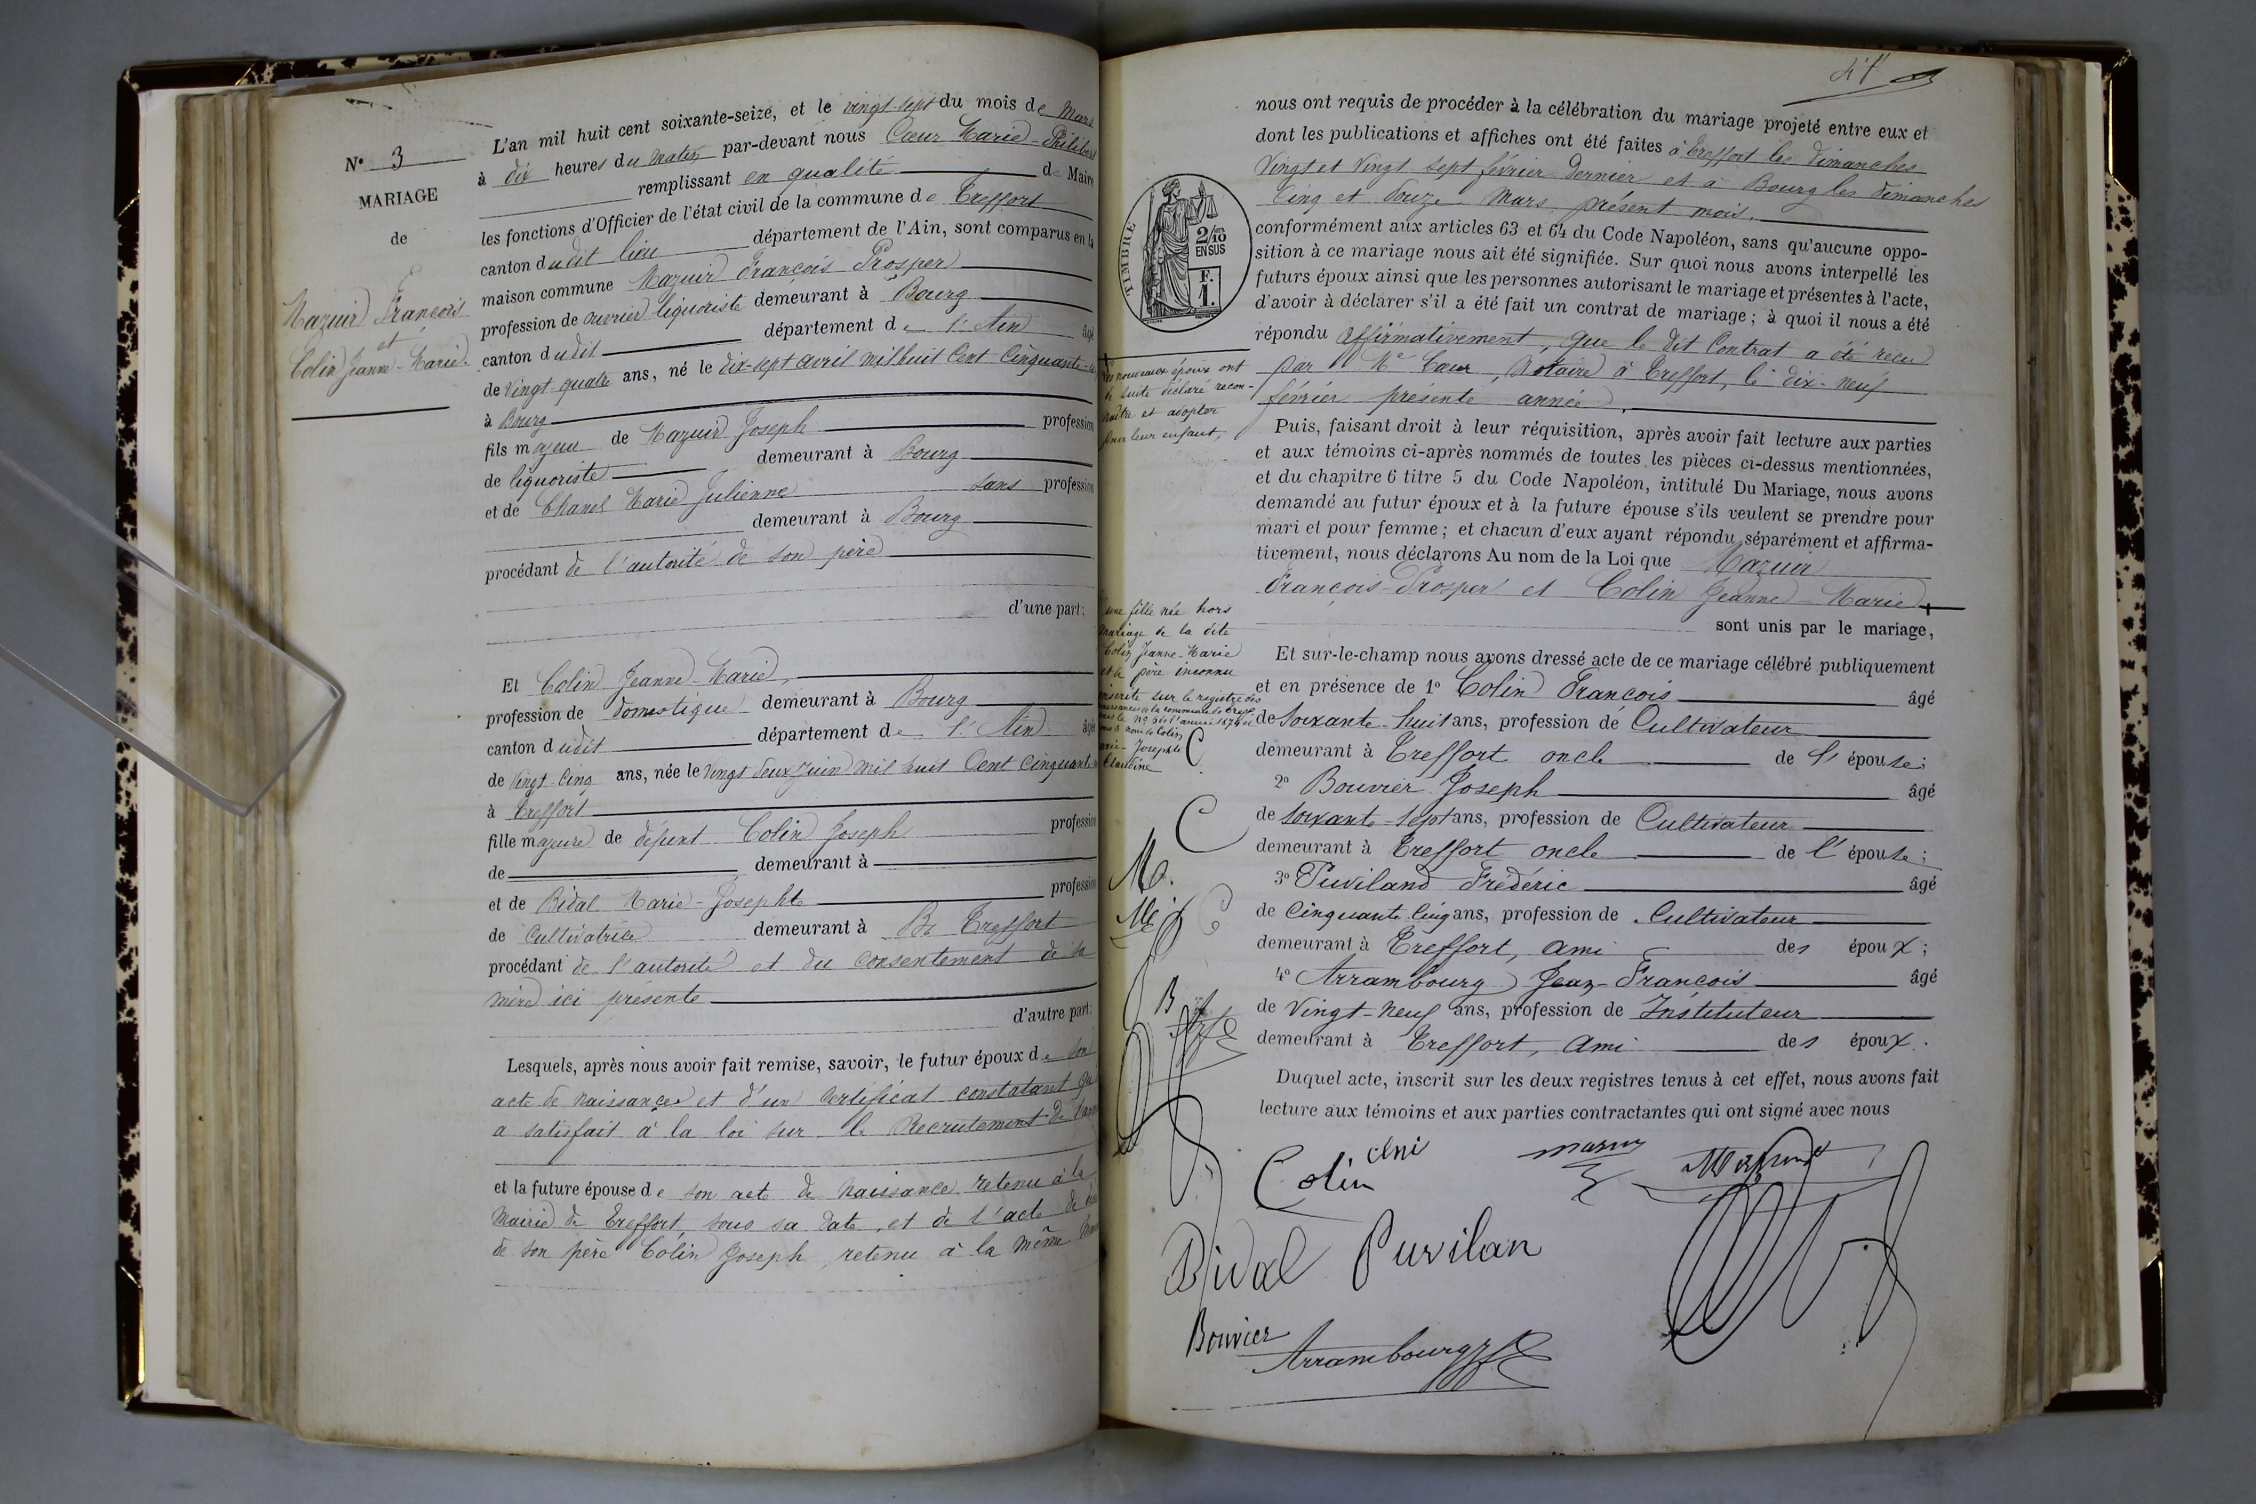 N° 3
MARIAGE
de
Mazuir François
et
Colin Jeanne-Marie.
L'an mil huit cent soixante-seize, et le vingt sept du mois de Mars
à dix heures du matin par-devant nous Cœur Marie-Philibert
remplissant en qualité de Maire
les fonctions d'Officier de l'état civil de la commune de Treffort
canton dudit lieu département de l'Ain, sont comparus en la
maison commune Mazuir François Prosper
profession de ouvrier liquoriste demeurant à Bourg
canton dudit département de l'Ain âgé
de vingt quatre ans, né le dix-sept avril mil huit cent cinquante
à Bourg
fils majeur de Mazuir Joseph profession
de liquoriste demeurant à Bourg
et de Chanel Marie Julienne sans profession
demeurant à Bourg
procédant de l'autorité de son père
d'une part;
Et Colin Jeanne-Marie,
profession de domestique demeurant à Bourg
canton dudit département de l'Ain âgée
de vingt-cinq ans, née le vingt deux juin mil huit cent cinquante
à Treffort
fille majeure de défunt Colin Joseph profession
de demeurant à
et de Bidal Marie-Josephte profession
de cultivatrice demeurant à Treffort
procédant de l'autorité et du consentement de sa
mère ici présente
d'autre part;
Lesquels, après nous avoir fait remise, savoir, le futur époux de son
acte de naissance et d'un certificat constatant qu'
a satisfait à la loi sur le Recrutement de
et la future épouse de son acte de naissance retenu à la
Mairie de Treffort, sous sa date, et de l'acte de
de son père Colin Joseph, retenu à la même
nous ont requis de procéder à la célébration du mariage projeté entre eux et
dont les publications et affiches ont été faites à Treffort les dimanches
vingt et vingt sept février dernier et à Bourg les dimanches
cinq et douze Mars présent mois.
conformément aux articles 63 et 64 du Code Napoléon, sans qu'aucune oppo-
sition à ce mariage nous ait été signifiée. Sur quoi nous avons interpellé les
futurs époux ainsi que les personnes autorisant le mariage et présentes à l'acte,
d'avoir à déclarer s'il a été fait un contrat de mariage; à quoi il nous a été
répondu affirmativement, que le dit Contrat a été reçu
par Me Cœur, Notaire à Treffort, le dix-neuf
février présente année.
TIMBRE
2/10
EN SUS
F.
1.
Les nouveaux époux ont
de suite déclaré recon-
naître et adopter
pour leur enfant,
Puis, faisant droit à leur réquisition, après avoir fait lecture aux parties
et aux témoins ci-après nommés de toutes les pièces ci-dessus mentionnées,
et du chapitre 6 titre 5 du Code Napoléon, intitulé Du Mariage, nous avons
demandé au futur époux et à la future épouse s'ils veulent se prendre pour
mari et pour femme; et chacun d'eux ayant répondu séparément et affirma-
tivement, nous déclarons Au nom de la Loi que Mazuir
François-Prosper et Colin Jeanne-Marie
sont unis par le mariage,
une fille née hors
mariage de la dite
Colin Jeanne-Marie
et de père inconnu
inscrite sur le registre des
naissances de la commune de
l'année 1874
Colin
Josephte
Claudine
C
C
M.
B
Et sur-le-champ nous avons dressé acte de ce mariage célébré publiquement
et en présence de 1° Colin François âgé
de soixante-huit ans, profession de Cultivateur
demeurant à Treffort oncle de l'épouse;
2° Bouvier Joseph âgé
de soixante-sept ans, profession de Cultivateur
demeurant à Treffort oncle de l'épouse;
3° Puviland Frédéric âgé
de cinquante cinq ans, profession de Cultivateur
demeurant à Treffort, ami des époux;
4° Arrambourg Jean-François âgé
de vingt-neuf ans, profession de Instituteur
demeurant à Treffort, ami des époux.
Duquel acte, inscrit sur les deux registres tenus à cet effet, nous avons fait
lecture aux témoins et aux parties contractantes qui ont signé avec nous
Colin
Bidal Puvilan
Bouvier
Arrambourg